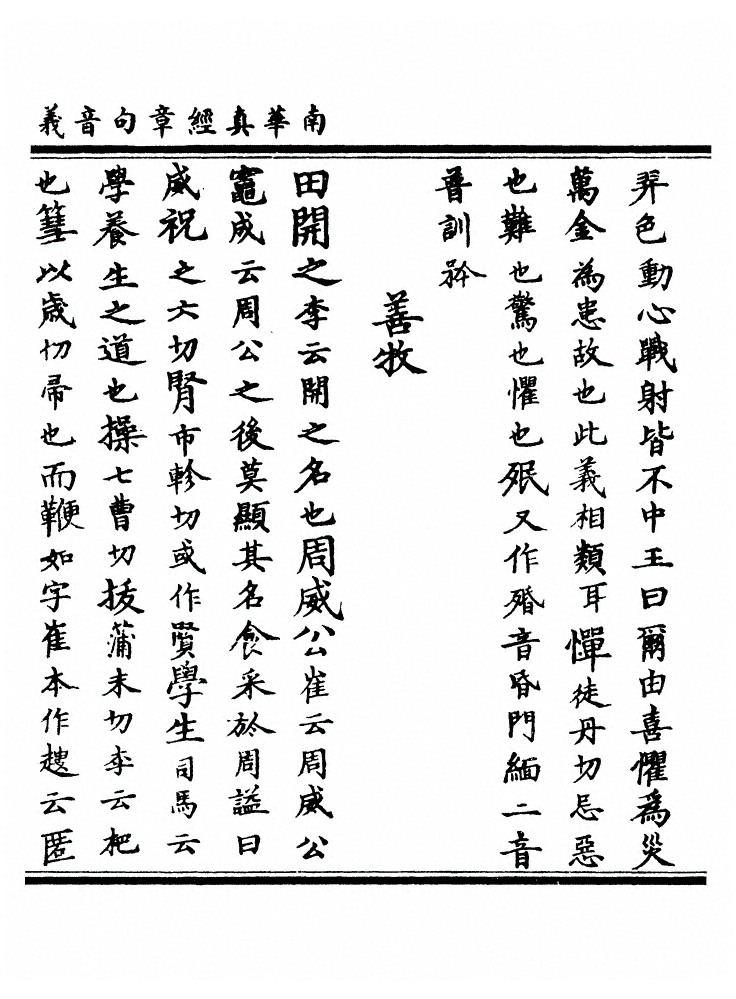 南華真經章句音義
羿色動心戰射皆不中王曰爾由喜懼爲災
萬金為患故也此義相類耳憚徒丹切忌惡
也難也驚也懼也殙又作殙音昏門緬二音
普訓矜
善牧
田開之李云開之名也周威公崔云周威公
竈成云周公之後莫顯其名食采於周謚曰
威祝之六切腎市軫切或作賢學生司馬云
學養生之道也操七曹切拔蒲末切李云杷
也篲以歲切帚也而鞭如字崔本作趮云匿